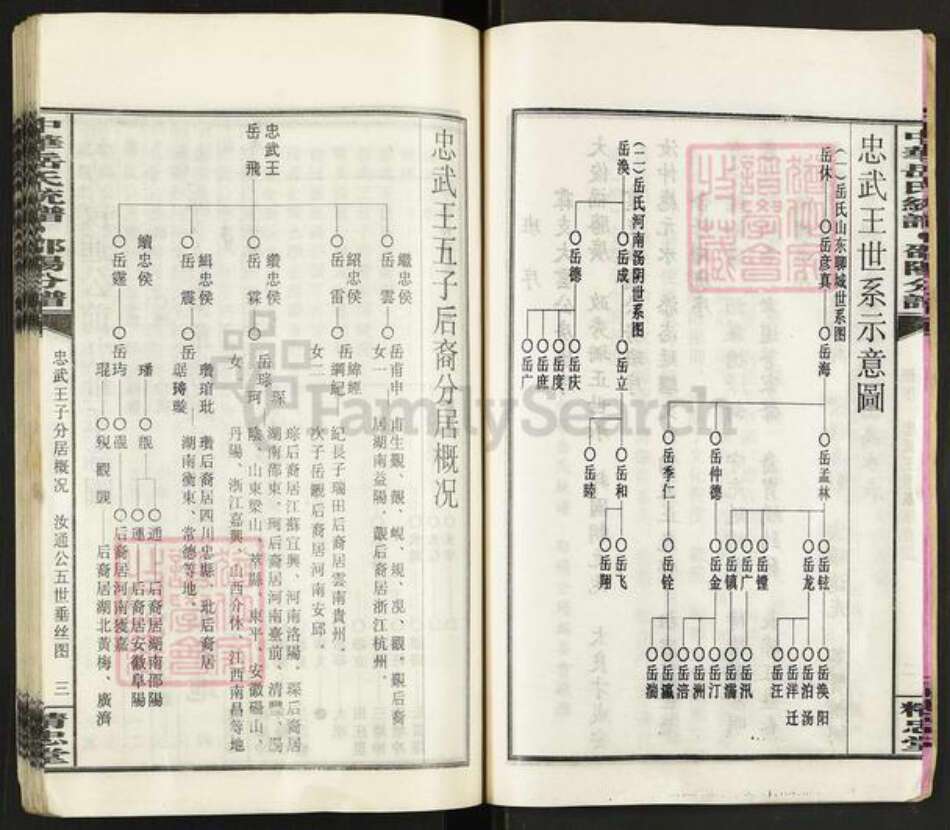 忠武王世系示意圖
(一)岳氏山东聊城世系图
岳休
岳彦真
岳海
岳孟林
岳仲德
岳季仁
岳铉
岳龙
岳镗
岳广
岳镇
岳金
岳铨
岳涣 阳
岳泊 汤
岳洋 迁
岳汪
岳汛
岳灞
岳汀
岳洲
岳涪
岳瀛
(二)岳氏河南汤阴世系图
岳涣
岳成
岳德
岳立
岳庆
岳度
岳庶
岳广
岳和
岳睦
岳飞
岳翔
精忠堂
忠武王五子后裔分居概况
忠武王
岳飞
繼忠侯
岳雲
紹忠侯
岳雷
纘忠侯
岳霖
緝忠侯
岳震
續忠侯
岳霆
岳甫申
女一
甫生觀、
居湖南益陽、觀后裔居浙江杭州、
岳緯經
綱紀
女二
紀長子瑞田后裔居雲南貴州、
次子岳觀后裔居河南安邱、
岳琮琛
珂
女
琮后裔居江蘇宜興、河南洛陽、琛后裔居
湖南邵東、珂后裔居河南臺前、清豐、
陰、山東梁山、莘縣、東平、安徽碭山、
丹陽、浙江嘉興、山西介休、江西南昌等地
岳
瓚后裔居四川忠縣、玭后裔居
湖南衡東、常德等地、
岳均
璠
琨
通
后裔居湖南邵陽
運
后裔居安徽阜陽
后裔居河南獲嘉
后裔居湖北黃梅、廣濟
忠武王子分居概况 汝通公五世垂丝图 三
中華岳氏統譜·邵陽分譜
精忠堂
FamilySearch